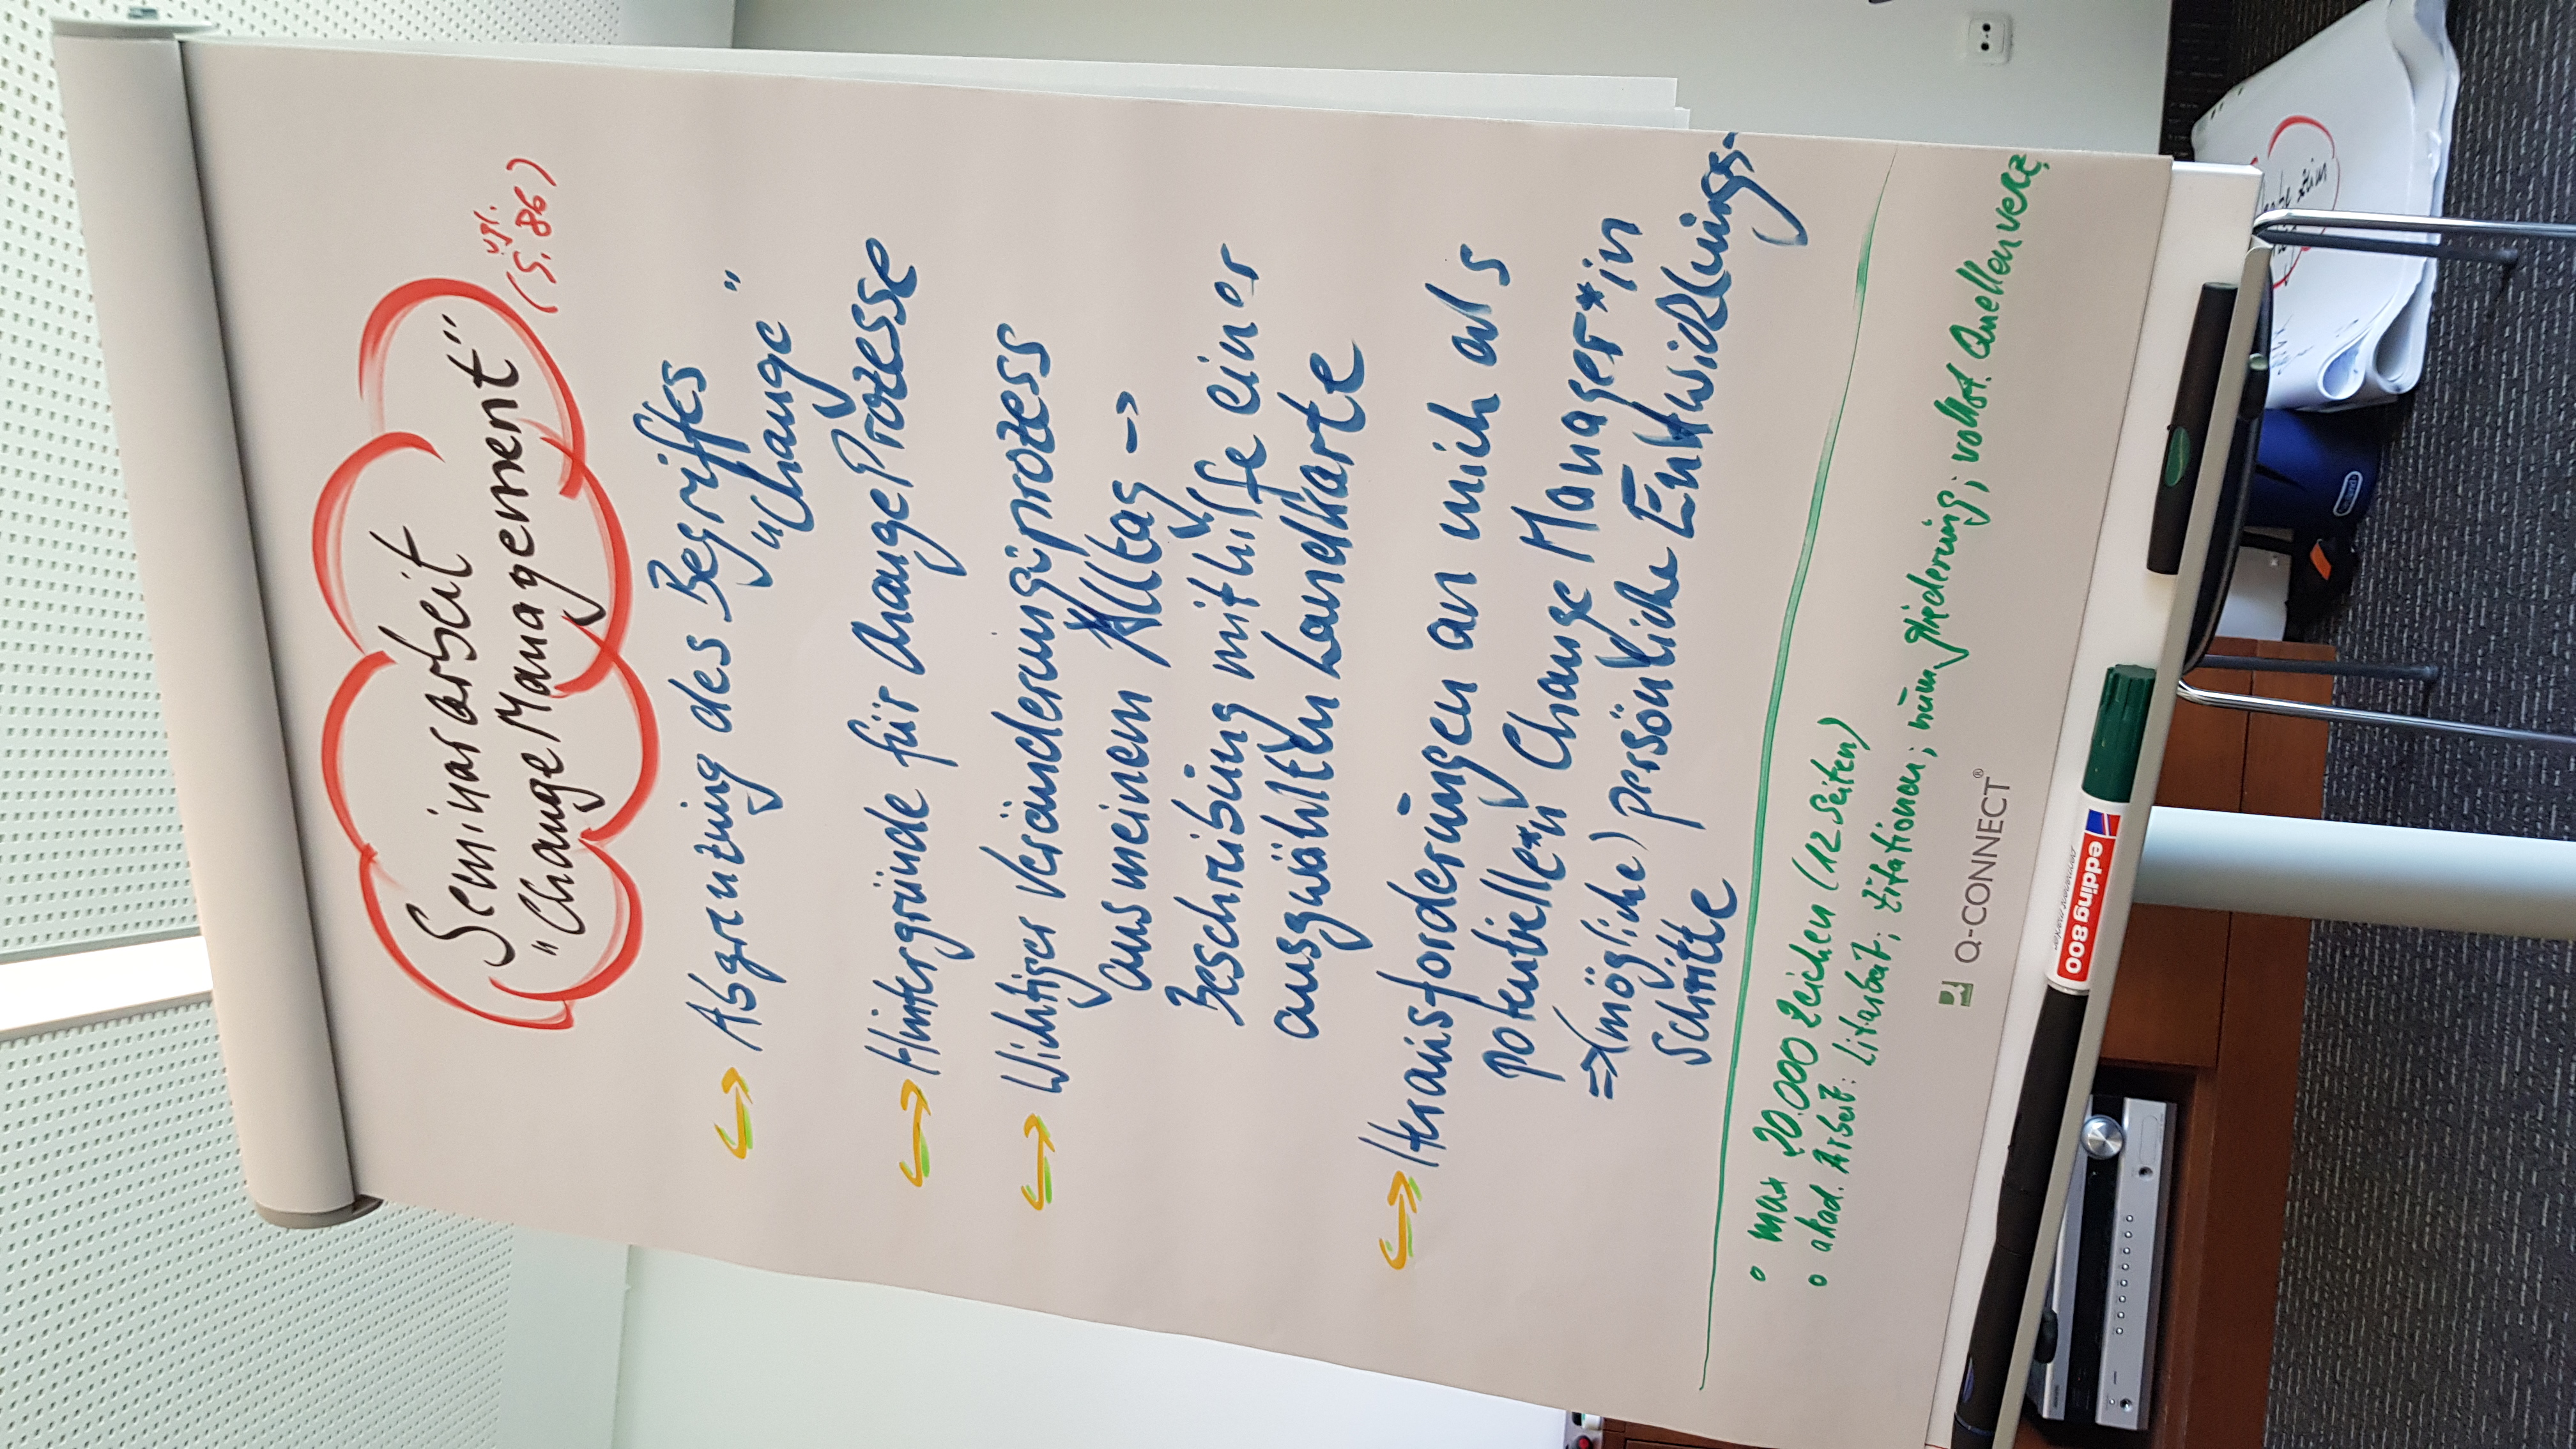 Seminararbeit
"Change Management"
vgl.
(S. 86)
Abgrenzung des Begriffes
"Change"
Hintergründe für Change Prozesse
Wichtiger Veränderungsprozess
aus meinem Alltag ->
Beschreibung mithilfe einer
ausgwählten Landkarte
Herausforderungen an mich als
potentielle*n Change Manager*in
=> (mögliche) persönliche Entwicklungs-
schritte
° max 20.000 Zeichen (12 Seiten)
° akad. Arbeit: Litarbeit; Zitationen; num. Gliederung; vollst. Quellenverz.
Q-CONNECT®
edding 800
permanent marker